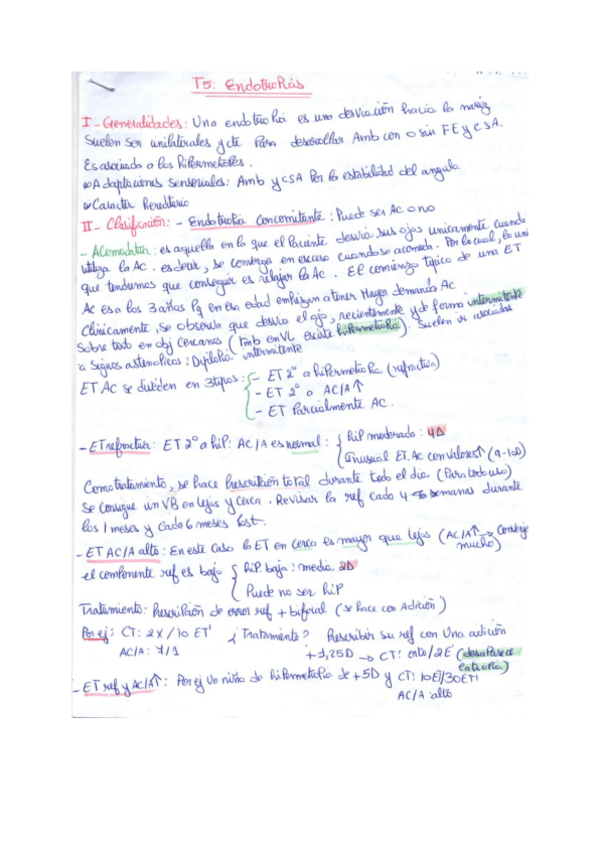 T5: Endotropías
I - Generalidades: Una endotropia es una desviación hacia la nariz
Suelen ser unilaterales y cte para desarrollar Amb con o sin FE y CSA.
Es asociado a los hipermetropes.
Adaptaciones sensoriales: Amb y CSA por la estabilidad del angulo.
Caracter hereditario
II - Clasificación: - Endotropia Concomitante: Puede ser Ac o no
- Acomodativa: es aquella en la que el paciente desvia sus ojos unicamente cuando
utiliza la Ac. es decir, se converge en exceso cuando se acomoda. Por lo cual, lo uni
que tendremos que conseguir es relajar la Ac. El comienzo típico de una ET
Ac es a los 3 años Pq en esa edad empiezan a tener mayor demanda Ac.
Clinicamente, se observa que desvia el ojo, recientemente y de forma intermitente
Sobre todo en obj cercanos (Tmb en VL existe hipermetropia). Suelen ir asociadas
a signos astenopicos: Diplopia intermitente
ET Ac se dividen en 3 tipos: - ET 2º a hipermetropia (refractiva)
- ET 2º a AC/A↑
- ET Parcialmente Ac.
- ET refractiva: ET 2º a hip: AC/A es normal: hip moderado: 4Δ
Inusual ET. Ac con valores↑ (9-10D)
Como tratamiento, se hace Prescripción total durante todo el dia (Para todo uso)
Se consigue un VB en lejos y cerca. Revisar la ref cada 4-6 semanas durante
los 1 meses y cada 6 meses Post.
- ET AC/A alto: En este caso la ET en cerca es mayor que lejos (AC/A↑ → Converge
mucho)
el componente ref es bajo hip baja: media 2D
Puede no ser hip
Tratamiento: Prescripción de error ref + bifocal (se hace con Adición)
Por ej: CT: 2X/10 ET' ¿Tratamiento? Prescribir su ref con una adición
AC/A: 7/1 +1,25D → CT: orto/2E' (desaparece
la tropia)
- ET ref y AC/A↑: Por ej un niño de hipermetropia de +5D y CT: 10ET/30ET'
AC/A alto